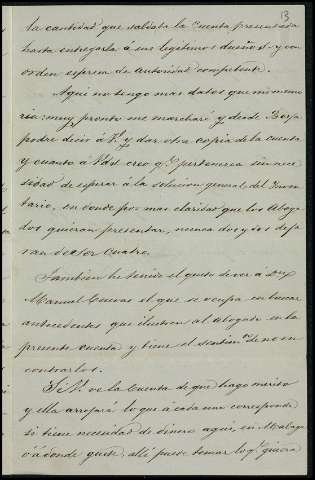 13
la cantidad que saldaba la Cuenta presentada
hasta entregarla a sus legitimos dueños y con
orden espresa de autoridad competente.
Aqui no tengo mas datos que mi memo
ria: muy pronto me marcharé y desde
podré decir á V. y dar otra copia de la cuenta
y cuanto á Vds creo qe pertenezca sin nece
sidad de esperar á la solucion general del Inven
tario, en donde por mas claridad que los Aboga
dos quieran presentar, nunca dos y dos deja
ran de ser Cuatro.
Tambien he tenido el gusto de ver a Dn
Manuel Cuevas el que se ocupa en buscar
antecedentes que ilustren al Abogado en la
presente cuenta y tiene el sentimto de no en
contrarlos.
Si V. ve la Cuenta de que hago merito
y ella arrojará lo que á cada uno corresponde
si tiene necesidad de dinero aqui, en Malaga
ó á donde guste, allí puede tomar lo qe quiera